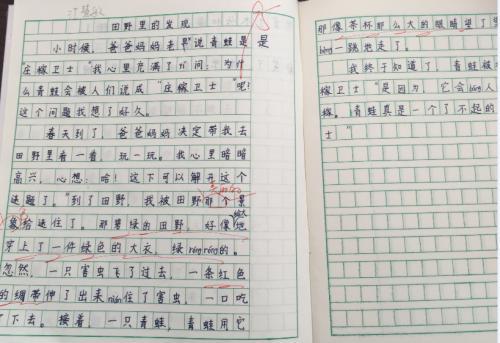 田野里的发现
小时候，爸爸妈妈老早说青蛙是
“庄稼卫士”我心里充满了疑问：为什
么青蛙会被人们说成“庄稼卫士”呢？
这个问题我想了好久。
春天到了，爸爸妈妈决定带我去
田野里看一看，玩一玩。我心里暗暗
高兴，心想：哈！这下可以解开这个
谜题了。”到了田野，我被田野那个景
象给迷住了。那碧绿的田野，好像给大地
穿上了一件绿色的大衣，绿róng róng的。
忽然，一只害虫飞了过去，一条红色
的绸带伸了出来nián住了害虫，一口吃
了下去。接着，一只青蛙，青蛙用它
那像茶杯那么大的眼睛望了
bèng一跳地走了。
我终于知道了，青蛙被
稼卫士”是因为，它会bāng人
稼。青蛙真是一个了不起的
士”